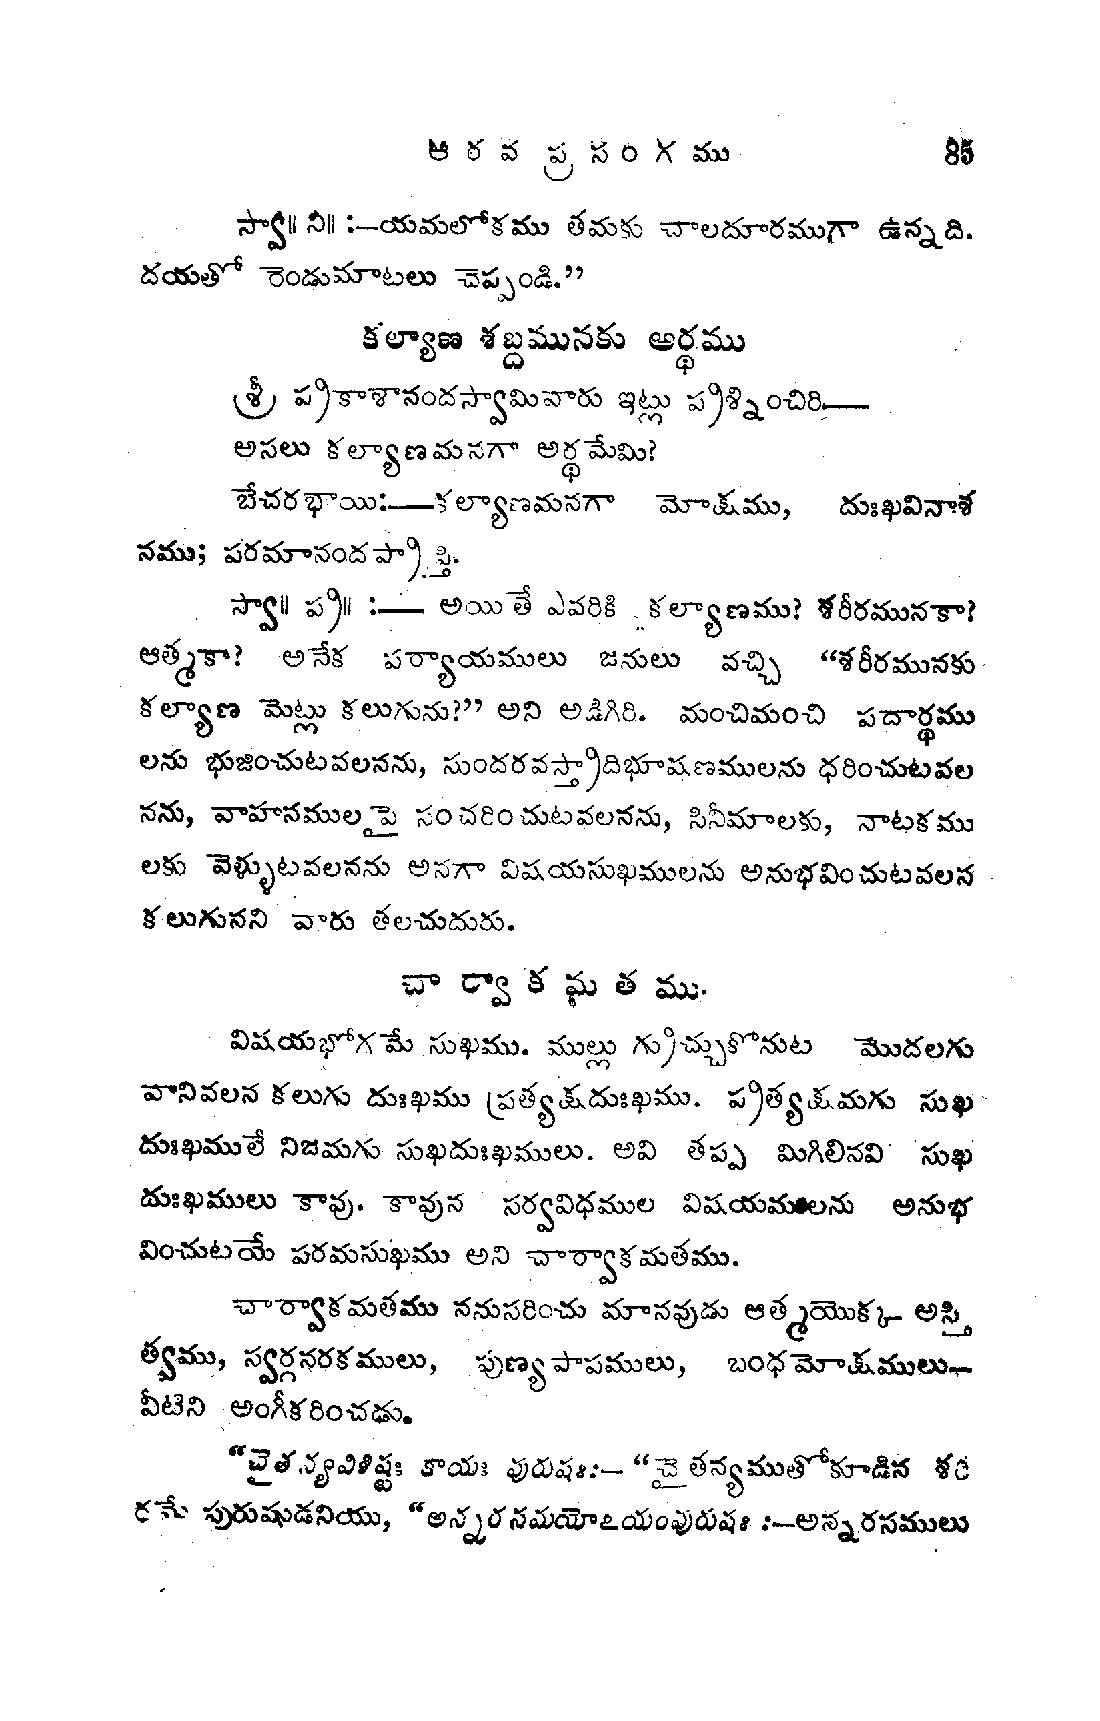 ఆ ర వ ప్ర సం గ ము 85
స్వా॥ ని॥ :—యమలోకము తమకు చాలదూరముగా ఉన్నది.
దయతో రెండుమాటలు చెప్పండి.”
కల్యాణ శబ్దమునకు అర్థము
శ్రీ ప్రకాశానందస్వామివారు ఇట్లు ప్రశ్నించిరి—
అసలు కల్యాణమనగా అర్థమేమి?
బేచరభాయి:—కల్యాణమనగా మోక్షము, దుఃఖవినాశ
నము; పరమానందప్రాప్తి.
స్వా॥ ప్ర॥ :— అయితే ఎవరికి కల్యాణము? శరీరమునకా?
ఆత్మకా? అనేక పర్యాయములు జనులు వచ్చి “శరీరమునకు
కల్యాణ మెట్లు కలుగును?” అని అడిగిరి. మంచిమంచి పదార్థము
లను భుజించుటవలనను, సుందరవస్త్రాదిభూషణములను ధరించుటవల
నను, వాహనములపై సంచరించుటవలనను, సినీమాలకు, నాటకము
లకు వెళ్ళుటవలనను అనగా విషయసుఖములను అనుభవించుటవలన
కలుగునని వారు తలచుదురు.
చా ర్వా క మ త ము.
విషయభోగమే సుఖము. ముల్లు గ్రుచ్చుకొనుట మొదలగు
వానివలన కలుగు దుఃఖము ప్రత్యక్షదుఃఖము. ప్రత్యక్షమగు సుఖ
దుఃఖములే నిజమగు సుఖదుఃఖములు. అవి తప్ప మిగిలినవి సుఖ
దుఃఖములు కావు. కావున సర్వవిధముల విషయములను అనుభ
వించుటయే పరమసుఖము అని చార్వాకమతము.
చార్వాకమతము ననుసరించు మానవుడు ఆత్మయొక్క అస్తి
త్వము, స్వర్గనరకములు, పుణ్యపాపములు, బంధమోక్షములు—
వీటిని అంగీకరించడు.
“చైతన్యవిశిష్టః కాయః పురుషః:— “చైతన్యముతోకూడిన శరీ
రమే పురుషుడనియు, “అన్నరసమయోఽయంపురుషః :—అన్నరసములు